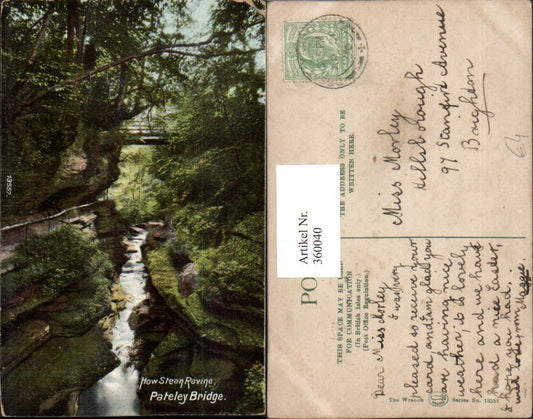 How Stean Ravine,
Pateley Bridge.
13557.
Artikel Nr.
360040
THE ADDRESS ONLY TO BE
WRITTEN HERE.
Miss Morley
Hillsborough
97 Stanford Avenue
Brighton
64
PO
THIS SPACE MAY BE
FOR COMMUNICATION
(In British Isles only)
(Post Office Regulation.)
Dear Miss Morley
I was very
pleased to receive your
card, and am glad you
are having nice
weather, it is lovely
here and we have
had a nice Easter.
I hope you had.
with love, from Maggie
The Wrench
Series No. 13551